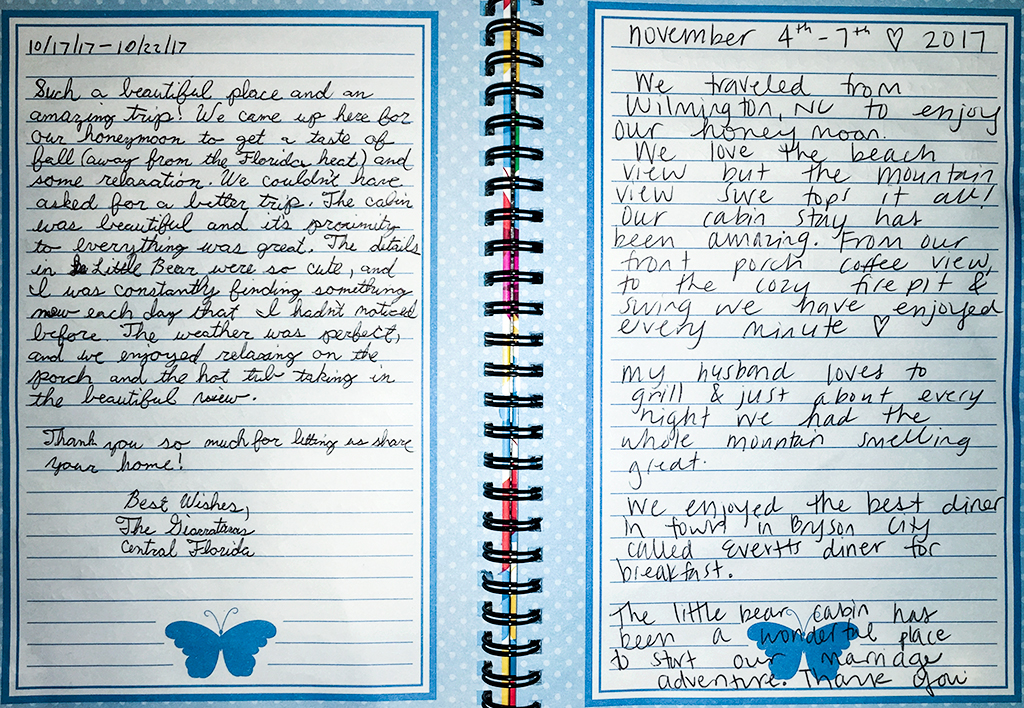 10/17/17 - 10/22/17
Such a beautiful place and an
amazing trip! We came up here for
our honeymoon to get a taste of
fall (away from the Florida heat) and
some relaxation. We couldn't have
asked for a better trip. The cabin
was beautiful and it's proximity
to everything was great. The details
in Little Bear were so cute, and
I was constantly finding something
new each day that I hadn't noticed
before. The weather was perfect,
and we enjoyed relaxing on the
porch and the hot tub taking in
the beautiful view.
Thank you so much for letting us share
your home!
Best Wishes,
The
Central Florida
november 4th - 7th ♡ 2017
We traveled from
Wilmington, NC to enjoy
our honey moon.
We love the beach
view but the mountain
view sure tops it all!
Our cabin stay has
been amazing. From our
front porch coffee view,
to the cozy firepit &
swing we have enjoyed
every minute ♡
my husband loves to
grill & just about every
night we had the
whole mountain smelling
great.
We enjoyed the best diner
in town in Bryson City
called Everetts diner for
breakfast.
The little bear cabin has
been a wonderful place
to start our marriage
adventure. Thank you